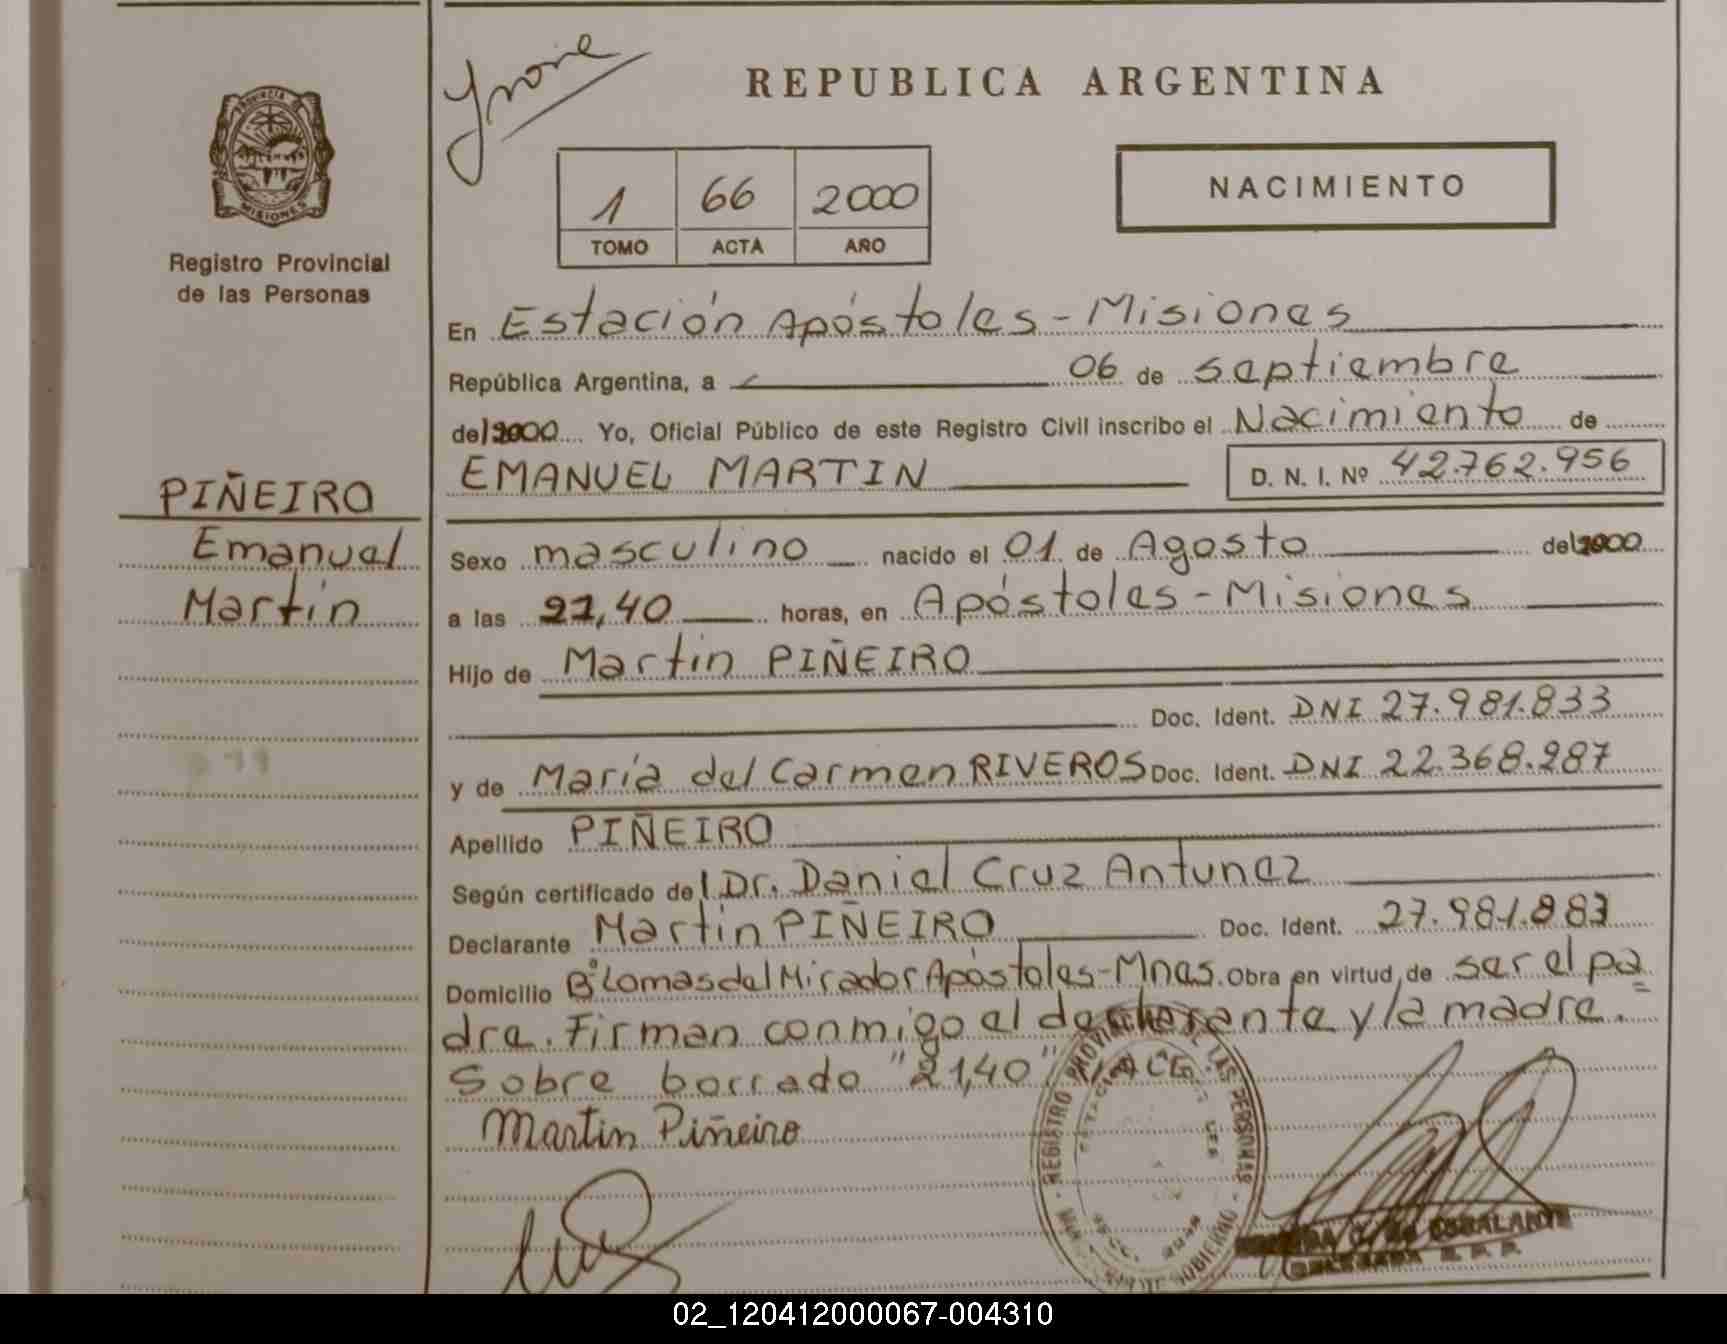 Ynone
REPUBLICA ARGENTINA
PROVINCIA DE
MISIONES
1 66 2000
TOMO ACTA AÑO
NACIMIENTO
Registro Provincial
de las Personas
En Estación Apóstoles - Misiones
República Argentina, a 06 de septiembre
del 2000 Yo, Oficial Público de este Registro Civil inscribo el Nacimiento de
EMANUEL MARTIN D. N. I. Nº 42.762.956
PIÑEIRO
Emanuel
Martin
Sexo masculino nacido el 01 de Agosto del 2000
a las 21,40 horas, en Apóstoles - Misiones
Hijo de Martin PIÑEIRO
Doc. Ident. DNI 27.981.833
y de María del Carmen RIVEROS Doc. Ident. DNI 22.368.287
Apellido PIÑEIRO
Según certificado del Dr. Daniel Cruz Antunez
Declarante Martin PIÑEIRO Doc. Ident. 27.981.883
Domicilio Bº Lomas del Mirador Apóstoles - Mnes. Obra en virtud de ser el pa
dre. Firman conmigo el declarante y la madre.
Sobre borrado "21,40" VALE.
Martin Piñeiro
REGISTRO PROVINCIAL DE LAS PERSONAS
02_120412000067-004310